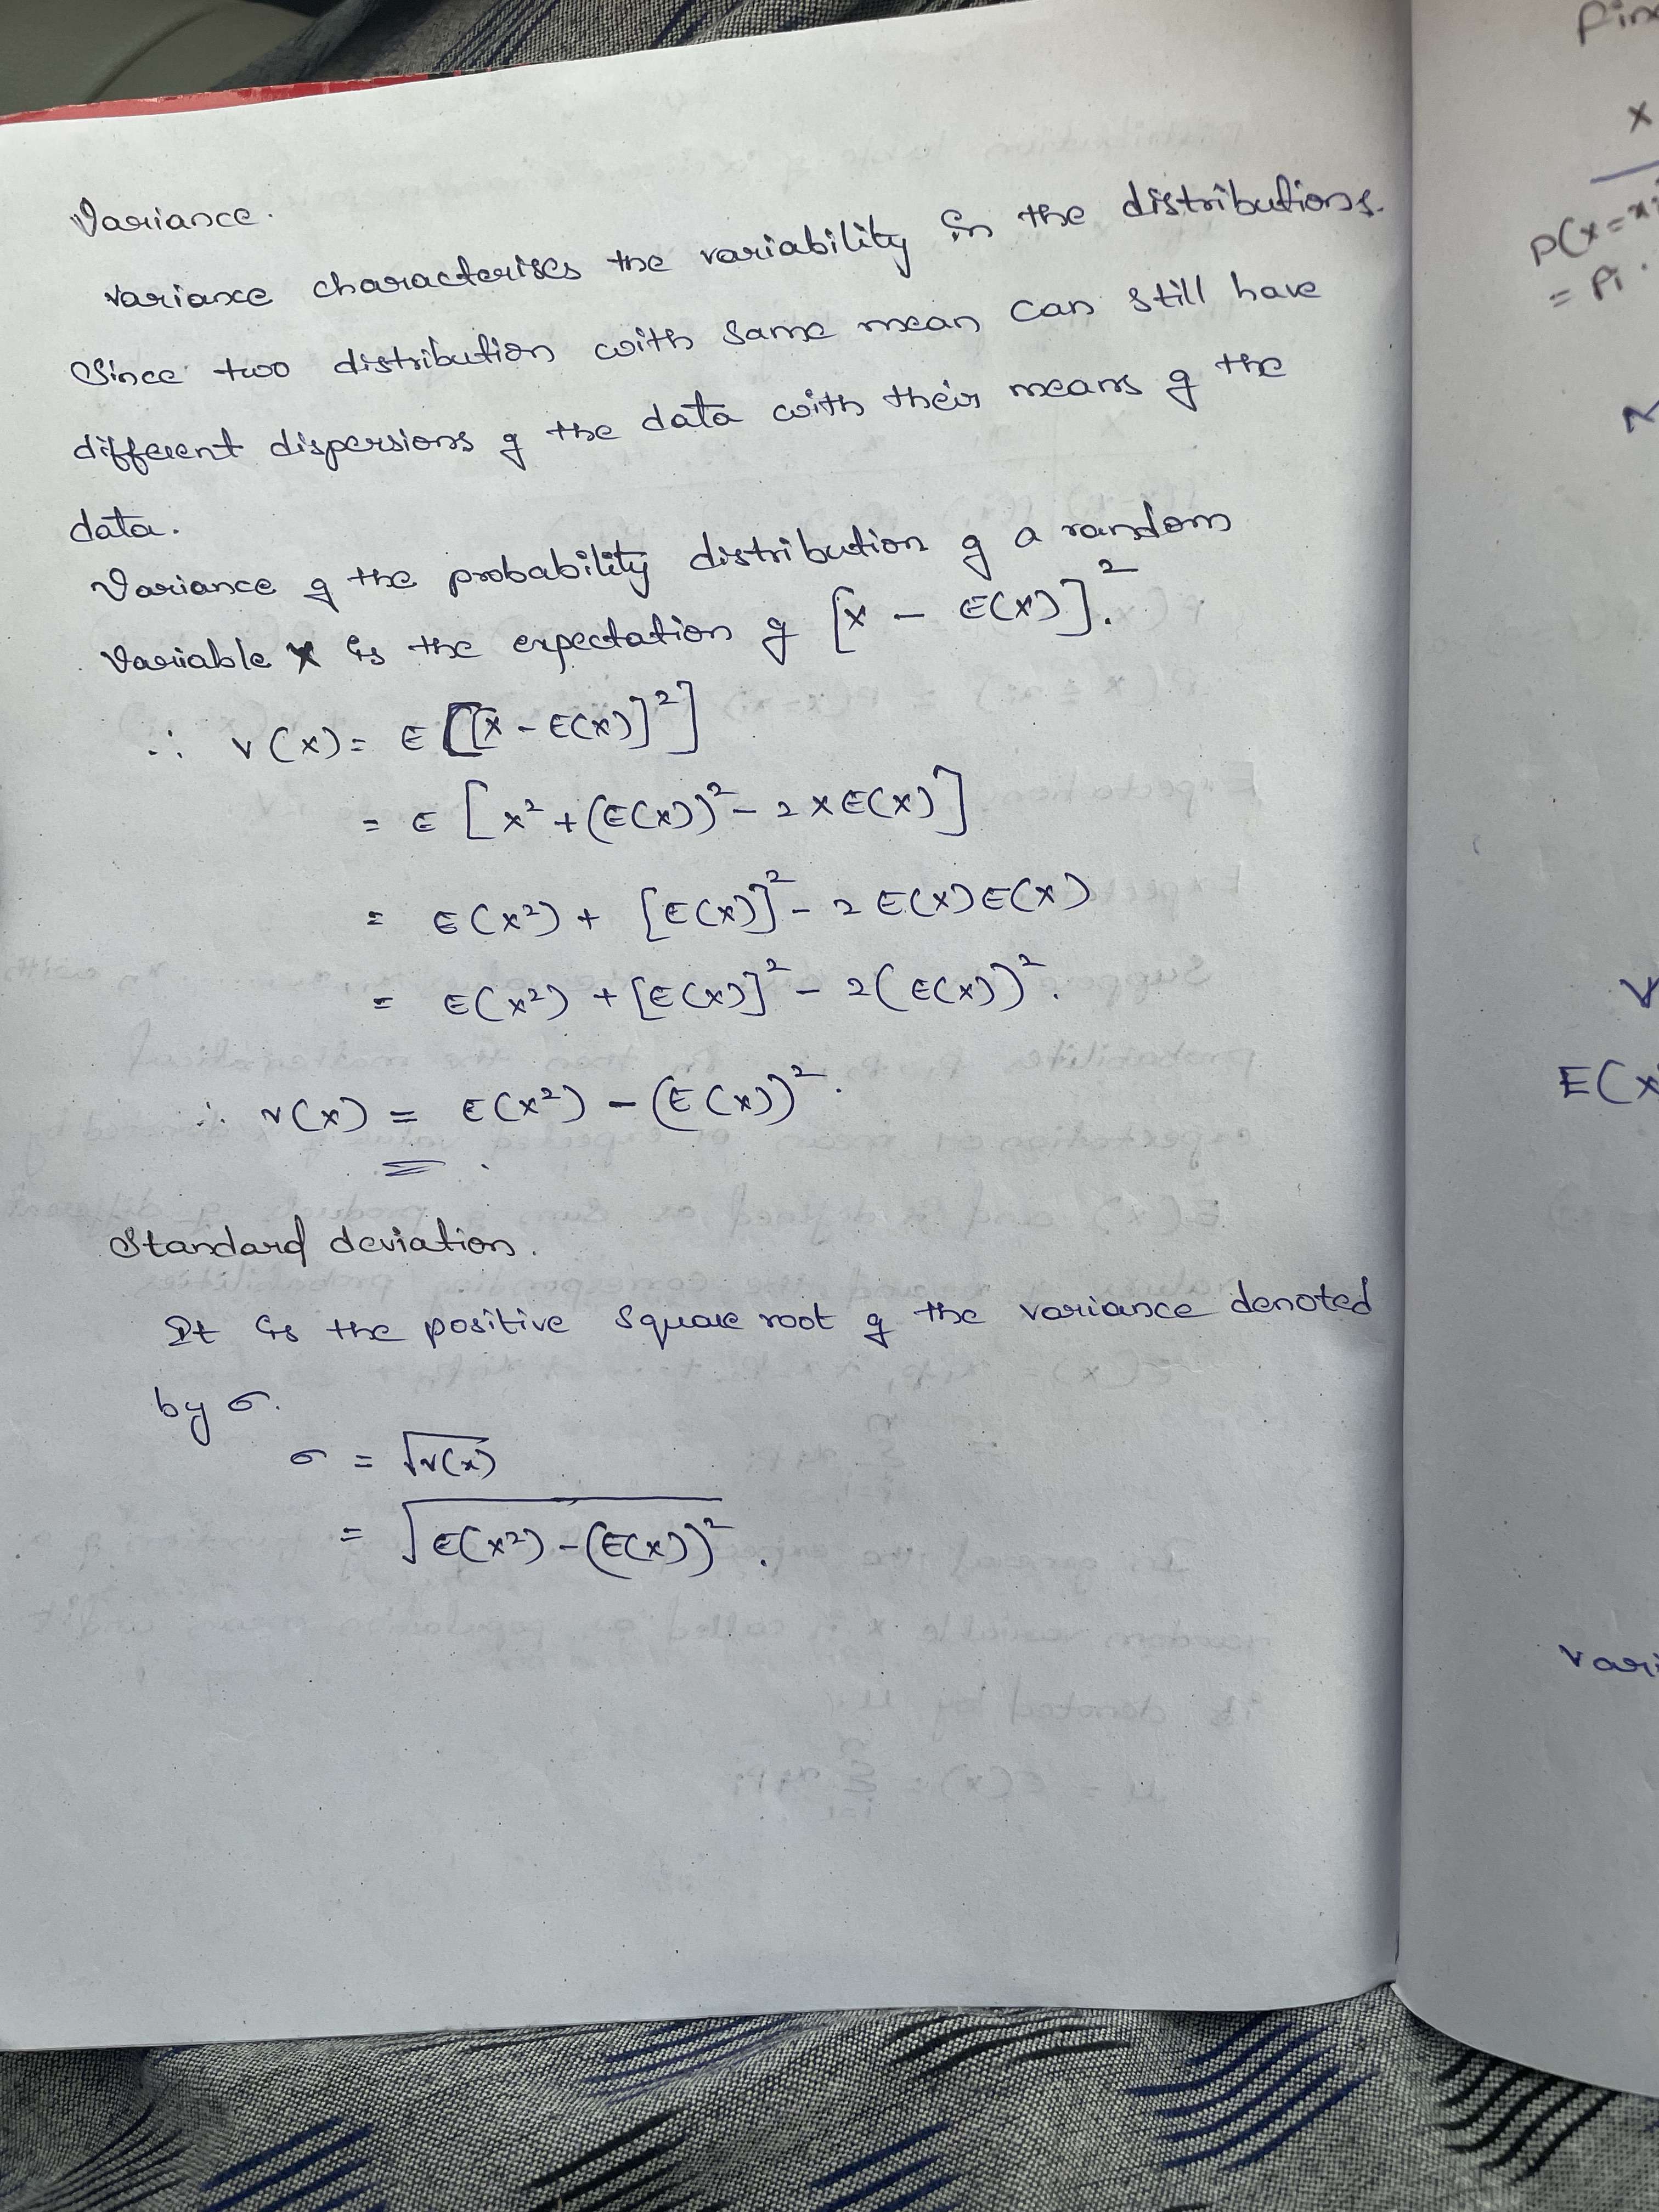 Variance.
Variance characterises the variability in the distributions.
Since two distribution with same mean can still have
different dispersions of the data with their means of the
data.
Variance of the probability distribution of a random
Variable X is the expectation of [X - E(X)]².
∴ V(X) = E[[X - E(X)]²]
= E[X² + (E(X))² - 2XE(X)]
= E(X²) + [E(X)]² - 2E(X)E(X)
= E(X²) + [E(X)]² - 2(E(X))².
∴ V(X) = E(X²) - (E(X))².
Standard deviation.
It is the positive square root of the variance denoted
by σ.
σ = √V(X)
= √E(X²) - (E(X))².
X
P(X=xi
= Pi.
E(X
Vari